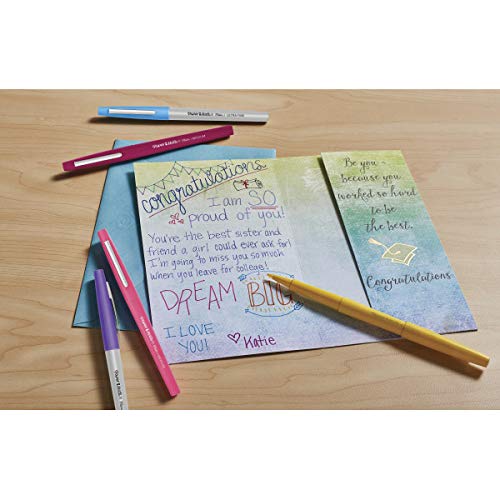 Paper Mate Flair
Paper Mate Flair
congratulations
I am SO
proud of you!
You're the best sister and
friend a girl could ever ask for!
I'm going to miss you so much
when you leave for college!
DREAM BIG
I LOVE
YOU!
Katie
Be you -
because you
worked so hard
to be
the best.
Congratulations